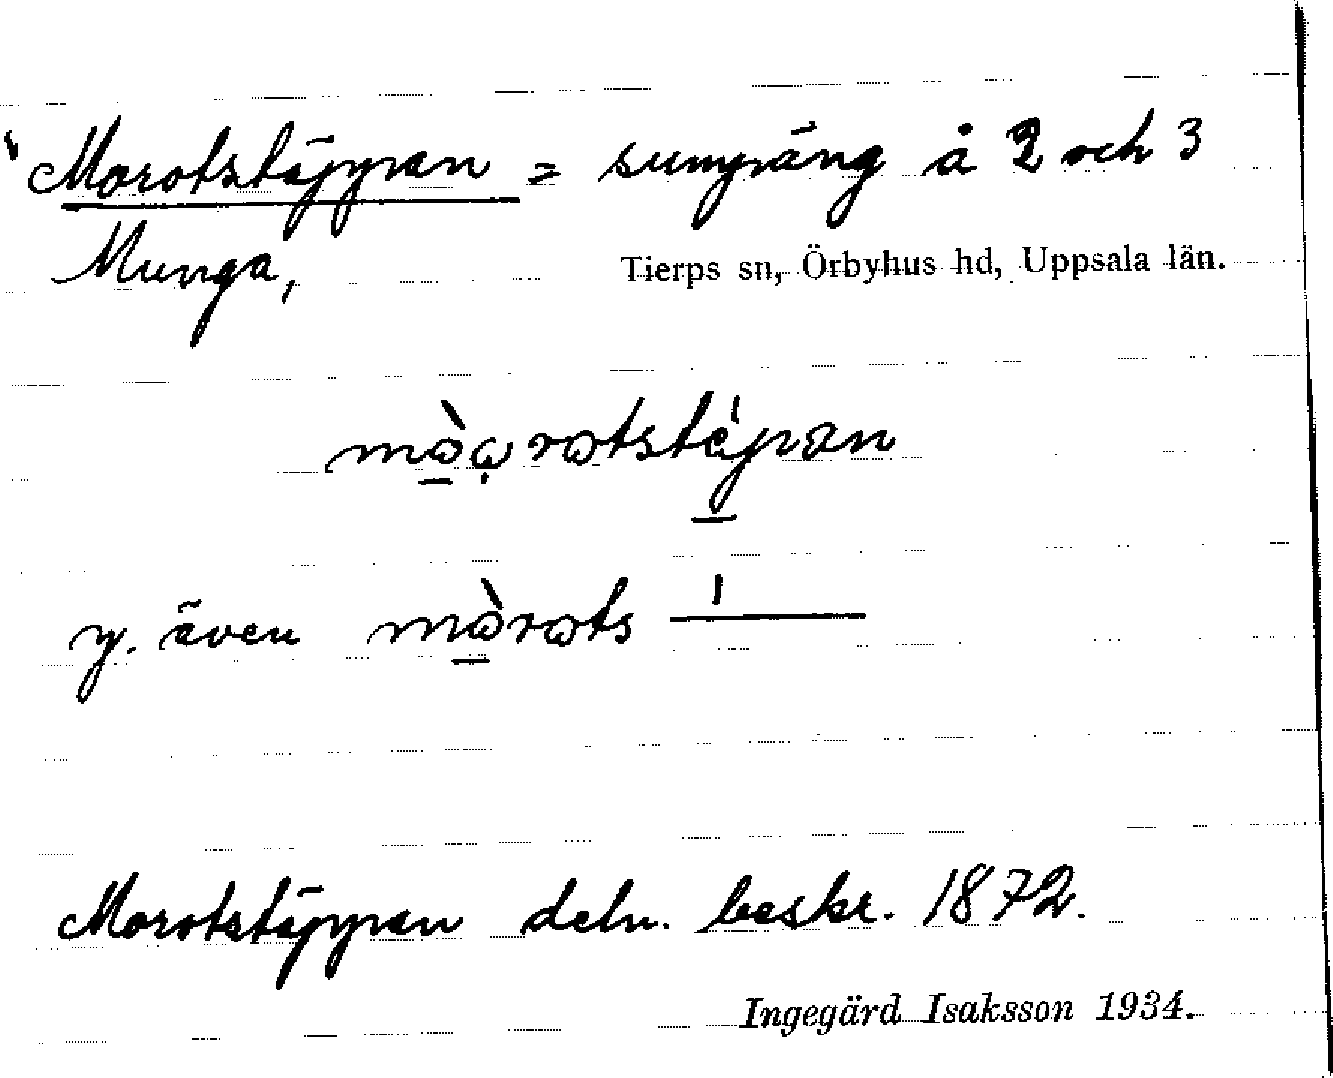 Morotstäppan = sumpäng å 2 och 3
Munga, Tierps sn, Örbyhus hd, Uppsala län.
y. även
Morotstäppan deln. beskr. 1872.
Ingegärd Isaksson 1934.